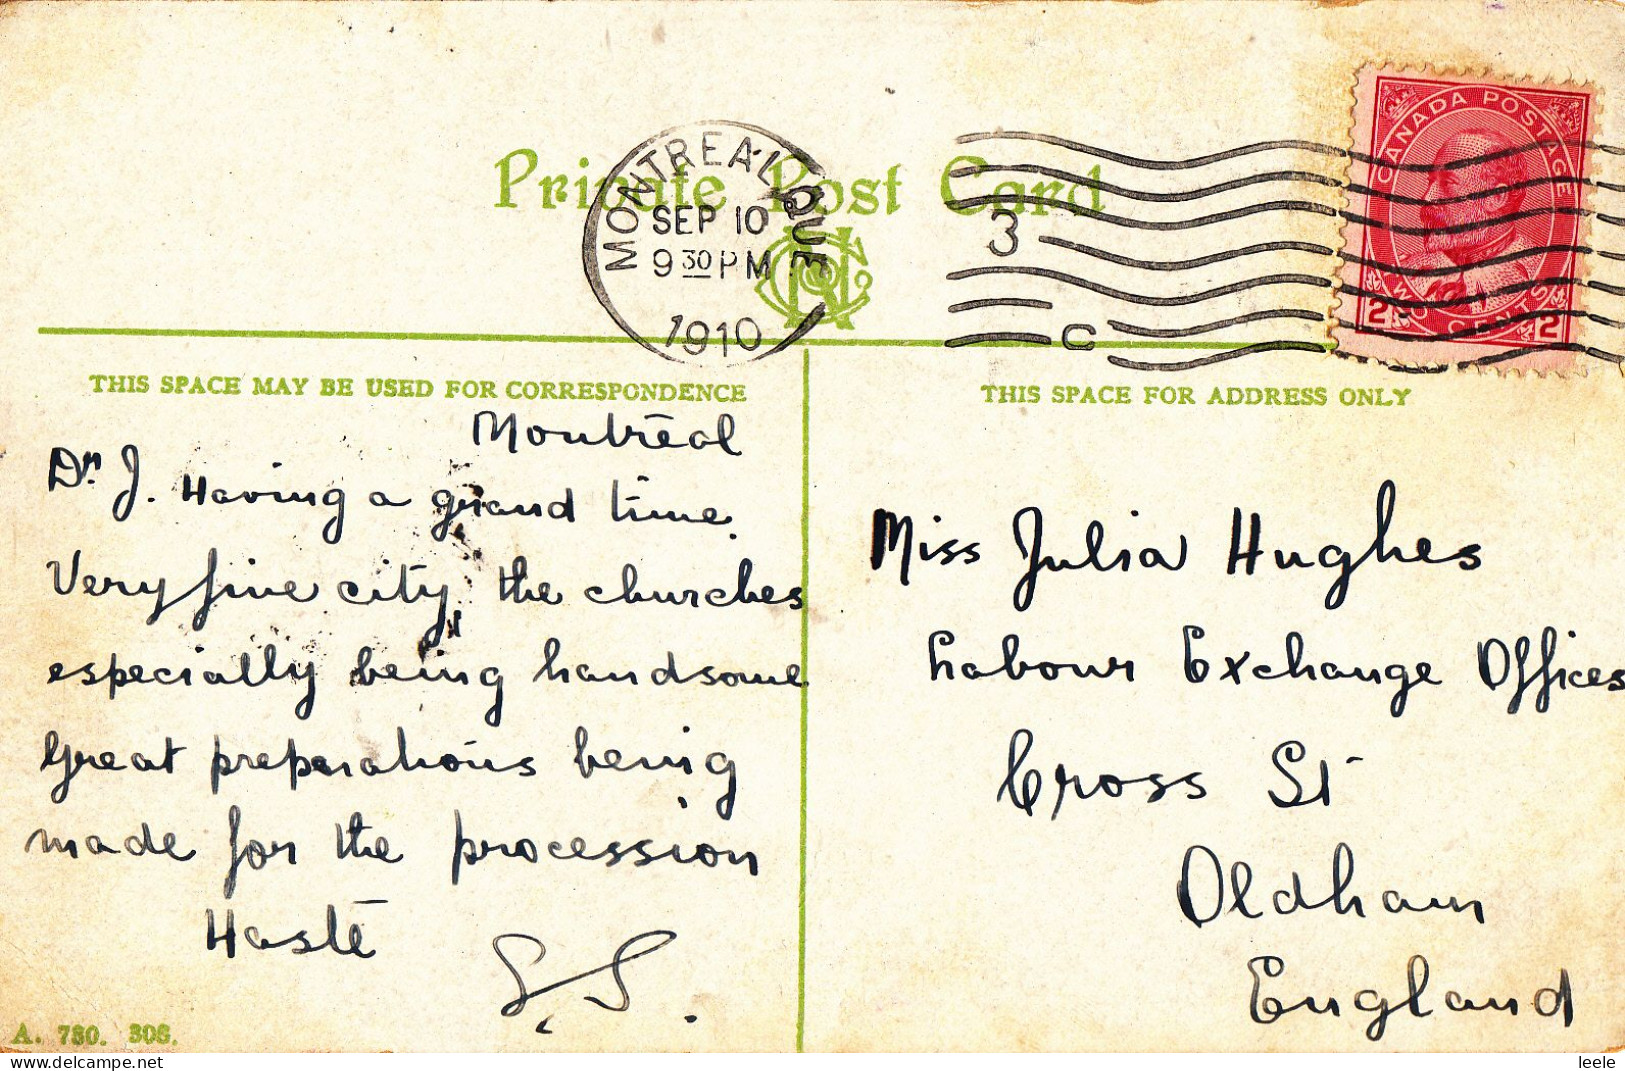 Private Post Card
MONTREAL QUE
SEP 10
9 30 PM
1910
3
C
CANADA POSTAGE
2 TWO CENTS 2
THIS SPACE MAY BE USED FOR CORRESPONDENCE
Montreal
Dr. J. Having a grand time.
Very fine city, the churches
especially being handsome
Great preparations being
made for the procession
Haste
S. S.
A. 730. 306.
THIS SPACE FOR ADDRESS ONLY
Miss Julia Hughes
Labour Exchange Offices
Cross St
Oldham
England
leele